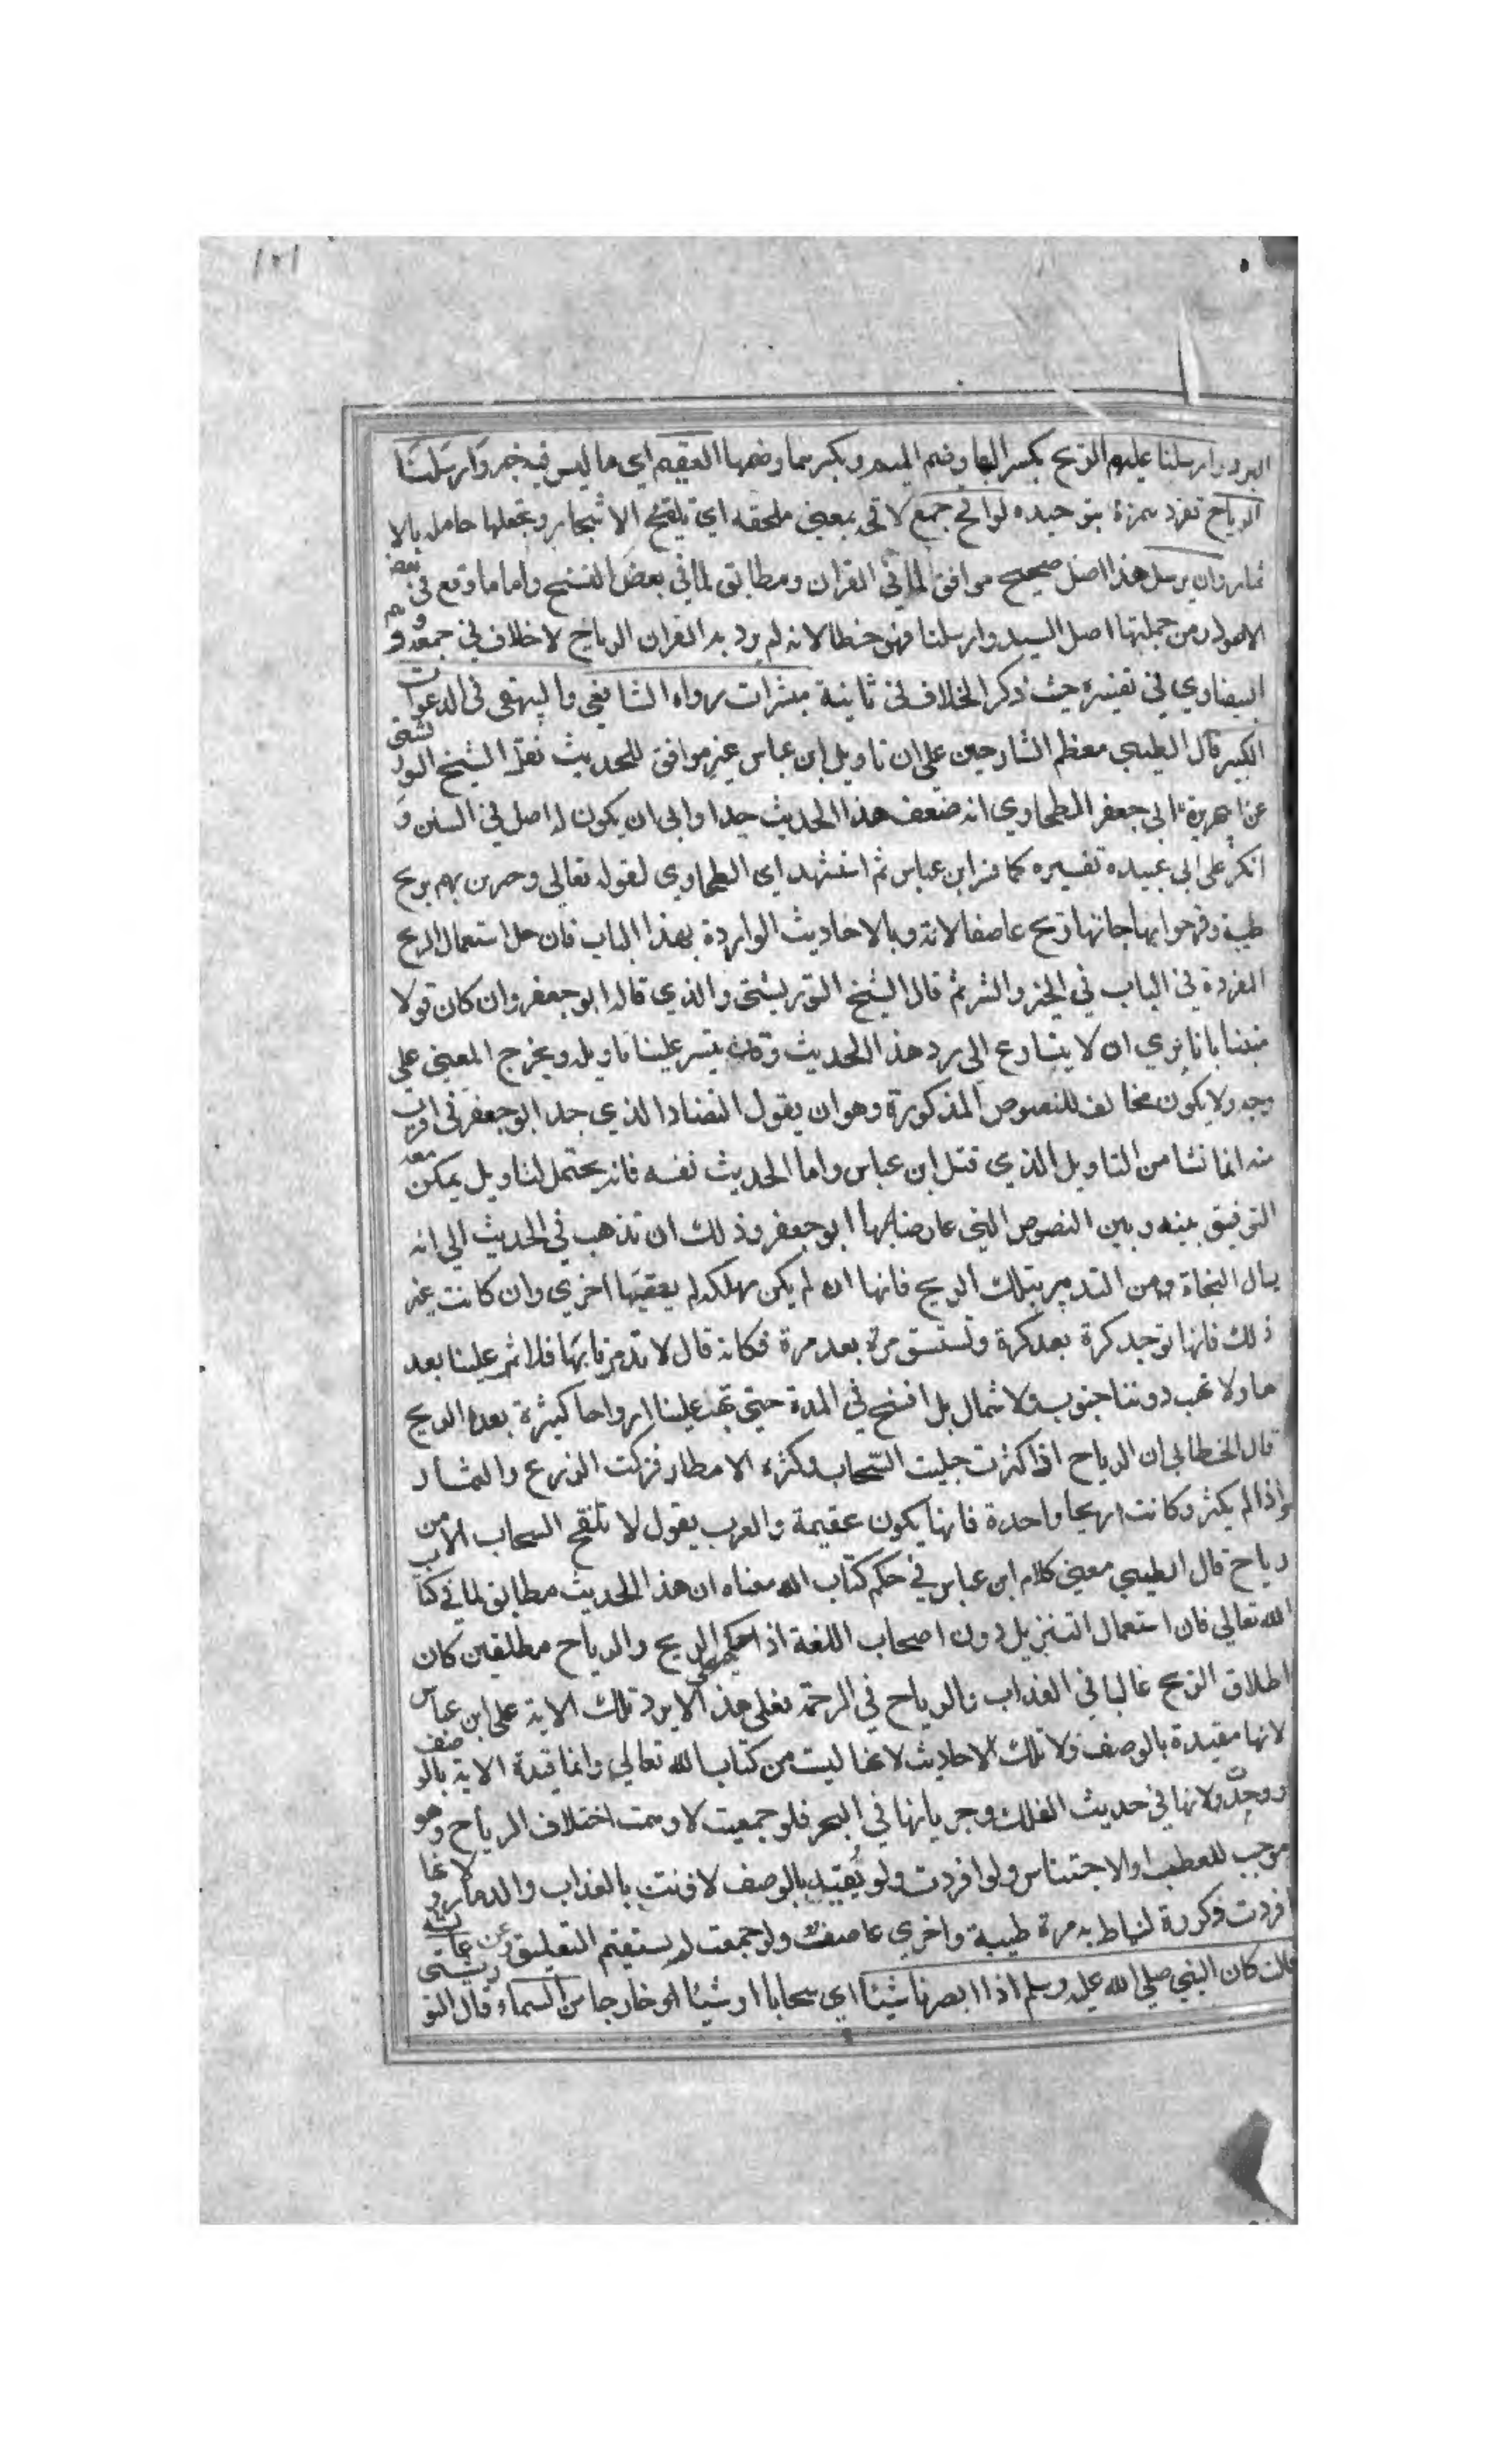 ١٢١
البرد وارسلنا عليهم الريح بكسر الهاء وضم الميم وبكسرهما وضمهما العقيم اي ما ليس فيه خير وارسلنا
الرياح تفرد حمزة بتوحيده لواقح جمع لاقح بمعنى ملقحه اي تلقح الاشجار وتجعلها حامله بالا
ثمار وان يرسل هذا اصل صحيح موافق لما في القران ومطابق لما في بعض النسخ واما ما وقع في بعض
الاصول ومن جملتها اصل السيد وارسلنا فهو خطا لانه لم يرد به القران الرياح لا خلاف في جمعه ووهم
البيضاوي في تفسيره حيث ذكر الخلاف في ثانية مبشرات رواه الشافعي والبيهقي في الدعوات
الكبير قال الطيبي معظم الشارحين على ان تاويل ابن عباس غير موافق للحديث نقل الشيخ التوربشتي
عن ابي جعفر الطحاوي انه ضعف هذا الحديث جدا وابى ان يكون له اصل في السنن و
انكر على ابي عبيده تفسيره كما فسر ابن عباس ثم استشهد اي الطحاوي لقوله تعالي وجرين بهم بريح
طيبة وفرحوا بها جاتها ريح عاصف الاية وبالاحاديث الواردة بهذا الباب فان جل استعمال الريح
المفردة في الباب في الخير والشر ثم قال الشيخ التوربشتي والذي قاله ابو جعفر وان كان قولا
متينا فانا نري ان لا يتسارع الى رد هذا الحديث وقد يتيسر علينا تاويله ويخرج المعنى علي
وجه ولا يكون مخالف للنصوص المذكورة وهو ان يقول التضاد الذي جد ابو جعفر في
منه انما نشا من التاويل الذي نقل ابن عباس واما الحديث نفسه فانه يحتمل لتاويل يمكن معه
التوفيق بينه وبين النصوص التي عارضه بها ابو جعفر وذلك ان تذهب في الحديث الي انه
سال النجاة من التدمير بتلك الريح فانها ان لم يكن مهلكه لم يعقبها اخري وان كانت غير
ذلك فانها توجد كرة بعد كرة وتستنسق مرة بعد مرة فكانه قال لا تدمرنا بها فلا تمر علينا بعد
ها ولا تهب دوننا جنوب ولا شمال بل افسح في المدة حتي تهب علينا ارواحا كثيرة بعد الريح
قال الخطابي ان الرياح اذا كثرت جلبت السحاب وكثره الامطار فزكت الزرع والثمار
واذا لم يكثر وكانت ريحا واحدة فانها يكون عقيمة والعرب يقول لا تلقح السحاب الا من
رياح قال الطيبي معني كلام ابن عباس في حكم كتاب الله معناه ان هذا الحديث مطابق لما في كتاب
الله تعالي فان استعمال التنزيل دون اصحاب اللغة اذا حكم الريح والرياح مطلقين كان
اطلاق الريح غالبا في العذاب والرياح في الرحمة فعلي هذا لا يرد تلك الاية على ابن عباس
لانها مقيدة بالوصف ولا تلك الاحاديث لانها ليست من كتاب الله تعالي وانما قيدة الاية بالوصف
ووحدت لانها في حديث الفلك وجريانها في البحر فلو جمعت لاوهمت اختلاف الرياح وهو
موجب للعطب او الاحتباس ولو افردت ولو يقيد بالوصف لاذنت بالعذاب والدمار ولانها
افردت وكررة ليناط به مرة طيبة واخري عاصف ولو جمعت لم يستقم التعليق وعن عائشه
قالت كان النبي صلي الله عليه وسلم اذا ابصرنا شيئا اي سحابا او شيئا خارجا من السماء قال التوربشتي